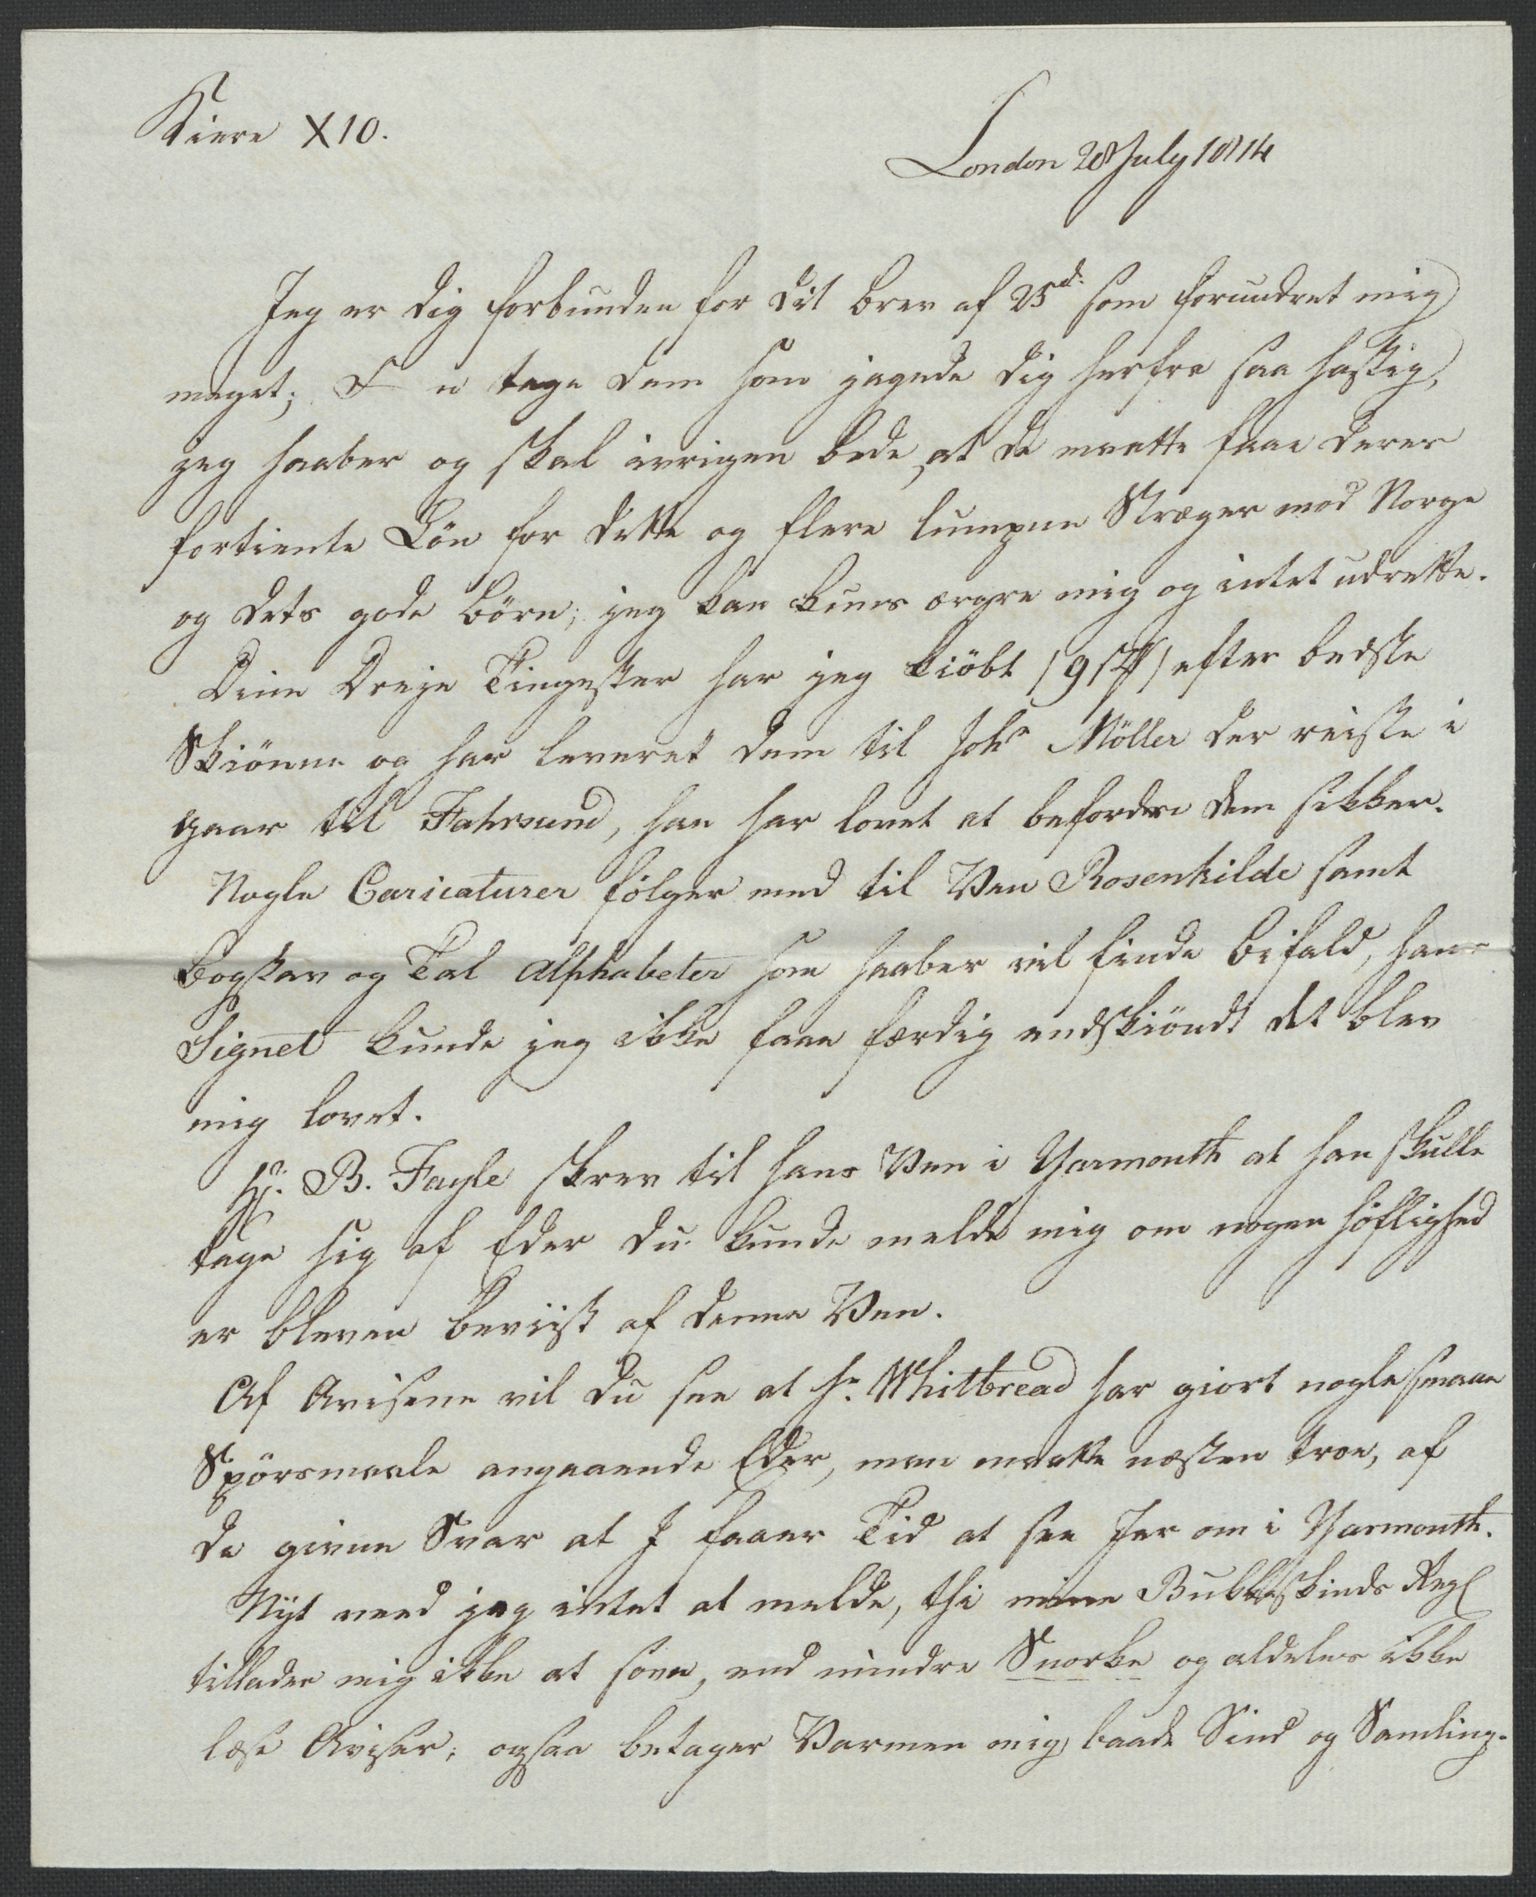 Kiere X10.
London 28 July 1814
Jeg er dig forbunden for dit brev af 25d. som forundret mig
meget; F n tage dem som jagede dig herfra saa hastig,
jeg haaber og skal ivrigen bede, at de maatte faae deres
fortiente Lön for dette og flere lumpne Stræger mod Norge
og dets gode börn; jeg kan kuns ærgre mig og intet udrette.
Dine Dreje Tingester har jeg kiöbt efter bedste
Skiönne og har leveret dem til Johs Möller der reiste i
gaar til Fahrsund, han har lovet at befordre dem sikker.
Nogle Caricaturer fölger med til Ven Rosenkilde samt
bogstav og Tal Alphabeter som haaber vil finde bifald, hans
Signet kunde jeg ikke faae færdig endskiöndt det blev
mig lovet.
Hr. B. Fayle skrev til hans Ven i Yarmouth at han skulle
tage sig af Eder du kunde melde mig om nogen höflighed
er bleven beviist af denne Ven.
Af Avisene vil du see at Hr. Whitbread har giort nogle smaae
Spörsmaale angaaende Eder, man maatte næsten troe, af
de givne Svar at I faaer Tid at see Jer om i Yarmouth.
Nyt veed jeg intet at melde, thi mine Bukkeskinds
tillader mig ikke at sove, end mindre Snorke og aldeles ikke
læse Aviser; ogsaa betager Varmen mig baade Sind og Samling.